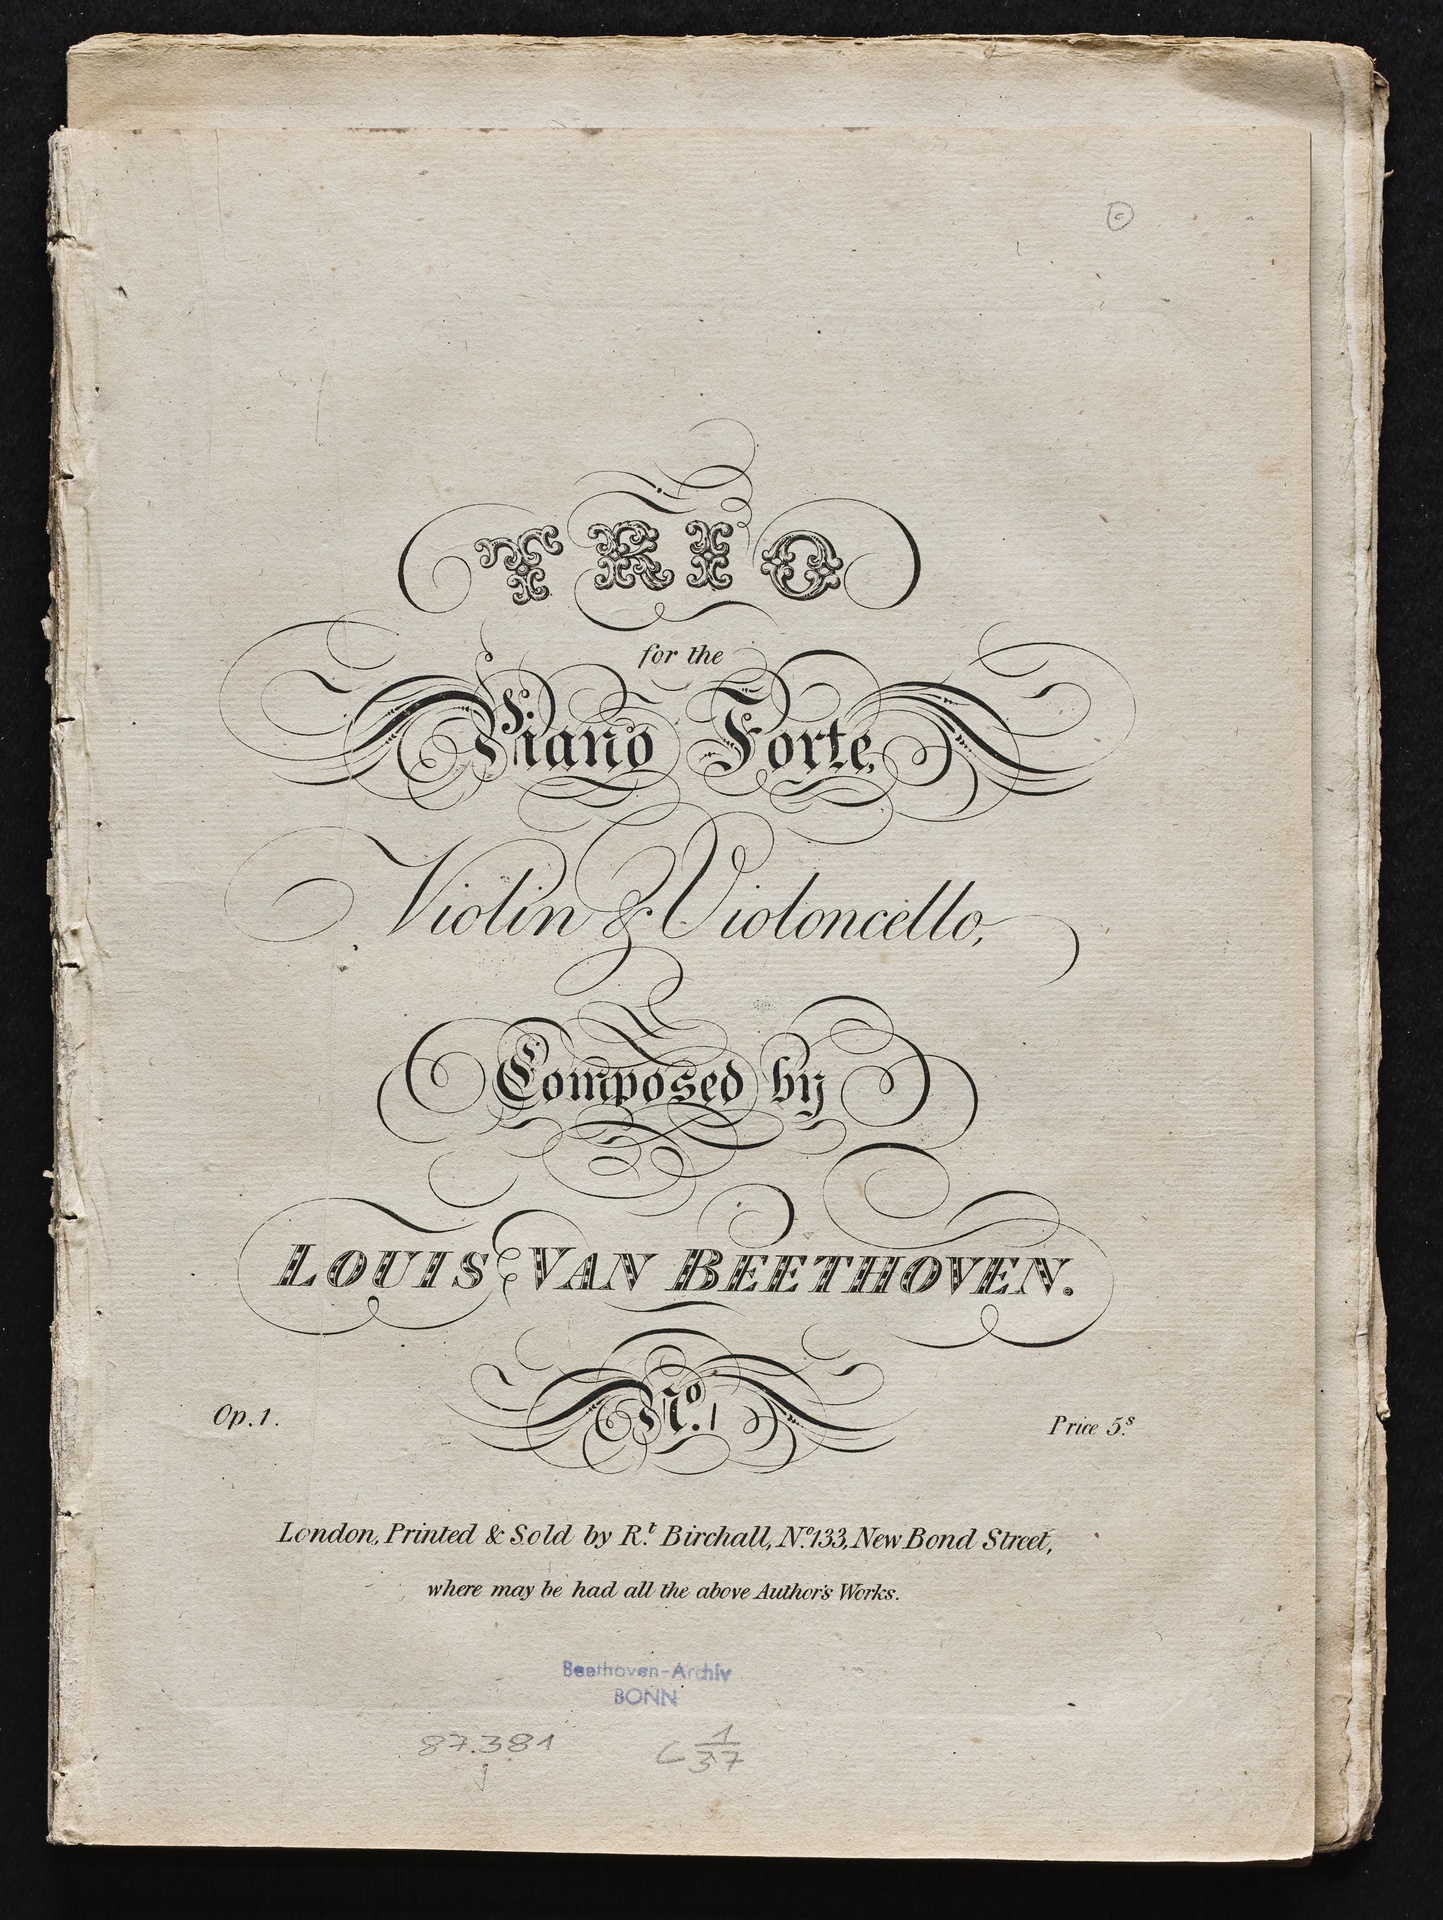 TRIO
for the
Piano Forte,
Violin & Violoncello,
Composed by
LOUIS VAN BEETHOVEN.
Op. 1. No. 1 Price 5.s
London, Printed & Sold by R.t Birchall, No. 133, New Bond Street,
where may be had all the above Author's Works.
Beethoven-Archiv
BONN
87.381 C 1/37